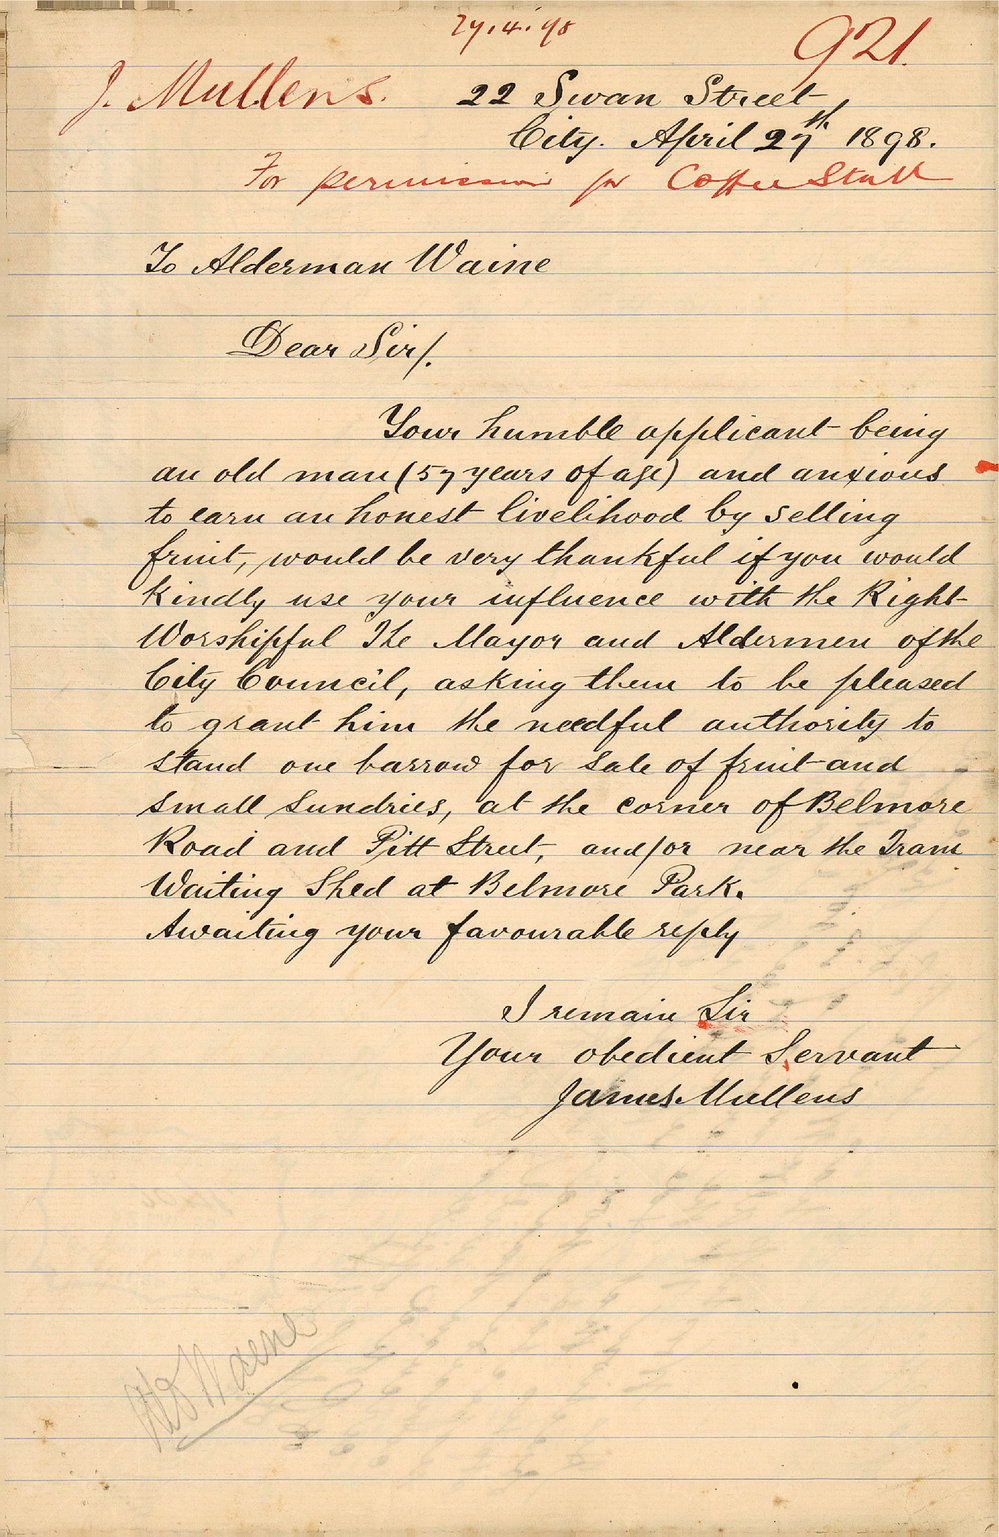 27.4.98
921.
J. Mullens.
22 Swan Street
City. April 27th 1898.
For permission for Coffee Stall
To Alderman Waine
Dear Sir/.
Your humble applicant being
an old man (57 years of age) and anxious
to earn an honest livelihood by selling
fruit, would be very thankful if you would
kindly use your influence with the Right
Worshipful The Mayor and Aldermen of the
City Council, asking them to be pleased
to grant him the needful authority to
stand one barrow for sale of fruit and
small sundries, at the corner of Belmore
Road and Pitt Street, and/or near the Tram
Waiting Shed at Belmore Park.
Awaiting your favourable reply
I remain Sir
Your obedient Servant
James Mullens
Waine